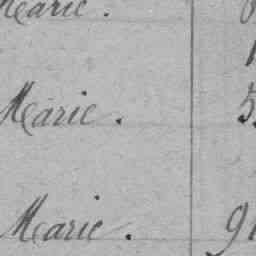 Marie.
Marie. 5
Marie. 9